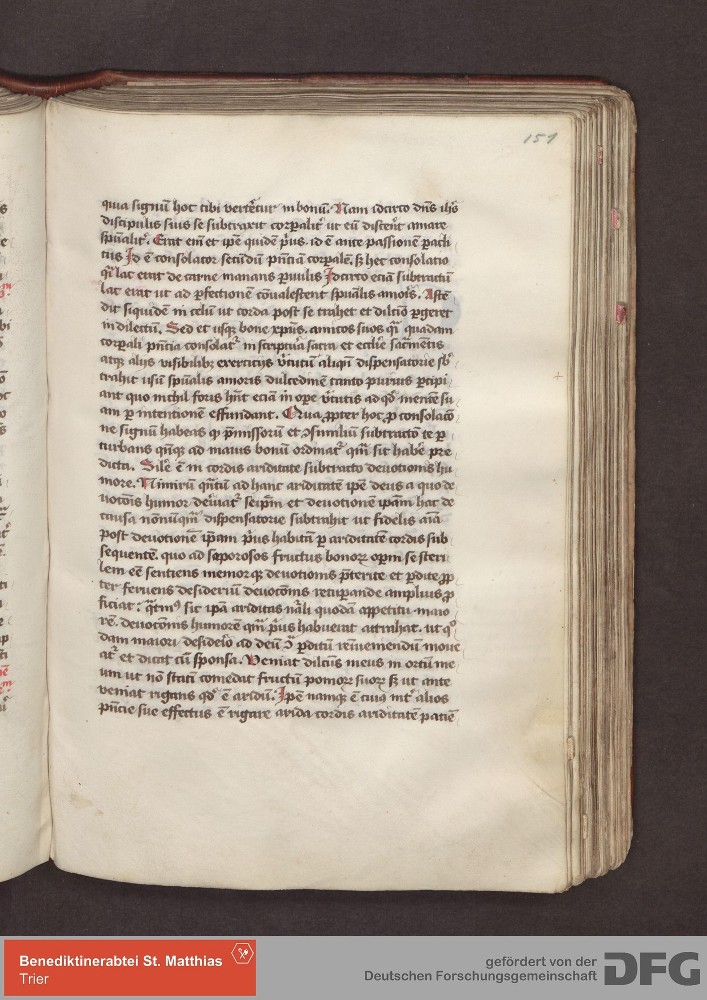 151
quia signū hoc tibi vertetur in bonū. Nam idcirco dn̄s ih̄s
discipulis suis se subtraxit corporalit̄ ut eū discerēt amare
spūalit̄. Erat em̄ et ip̄e quidē p̄us id ē ante passionē paracli
tus Id ē consolator secūdū pn̄ciā corporalē. sʒ hec consolatio
q̄i lac erat de carne manans ꝑvulis Idcirco eciā subtractū
lac erat ut ad ꝑfectionē cōualescerent spūalis amoris. Ascē
dit siquidē in celū ut corda post se trahet et dilcio ꝑgeret
in dilectū. Sed et usqꝫ bone xp̄us amicos suos q̄i quadam
corporali pn̄cia consolat᷑ in scriptura sacra et ecclie sacr̄mētis
atqꝫ alijs visibilibꝫ exercicijs v̄tutū aliqn̄ dispensatorie sb̄
trahit usū spūalis amoris dulcedinē tanto purius ꝑcipi
ant quo nichil foris hn̄t eciā in oꝑe v̄tutis ad qd̄ mentē su
am ꝑ intentionē effundant. Qua ꝓpter hoc ꝓ consolacō
ne signū habeas qꝫ p̄missorū et ꝯsimiliū subtractō te ꝑ
turbans qn̄qꝫ ad maius bonū ordinat᷑ qm̄ sit habē pre
dicta. Silē ē in cordis ariditate subtracto deuotionis hu
more. Nimirū qn̄tū ad hanc ariditatē ip̄e deus a quo de
uotōis humor deriuat᷑ seip̄m et deuotionē ip̄am hac de
causa nōnūqm̄ dispensatorie subtrahit ut fidelis aīa
post deuotionē ip̄am p̄us habitā ꝑ ariditatē cordis sub
sequentē. quo ad saporosos fructus bonoꝝ oꝑm se steri
lem eē sentiens memorqꝫ deuotionis p̄terite et ꝑdite ꝓp
ter feruens desideriū deuocōis recuperande amplius ꝓ
ficiat: q̄tin⁹ sit ip̄a ariditas nāli quodā appetitu maio
rē. deuocōis humorē qm̄ p̄us habuerat attrahat. ut qͦ
dam maiori desiderio ad deū ꝑditū reinueniendū moue
at᷑ et dicat cū sponsa. Veniat dilcūs meus in ortū me
um ut nō statī comedat fructū pomoꝝ suoꝝ sʒ ut ante
veniat rigans qd̄ ē aridū. Ip̄e namqꝫ ē cuius int̄ alios
pn̄cie sue effectus ē rigare arida cordis ariditatē paciē
Benediktinerabtei St. Matthias
Trier
gefördert von der
Deutschen Forschungsgemeinschaft
DFG